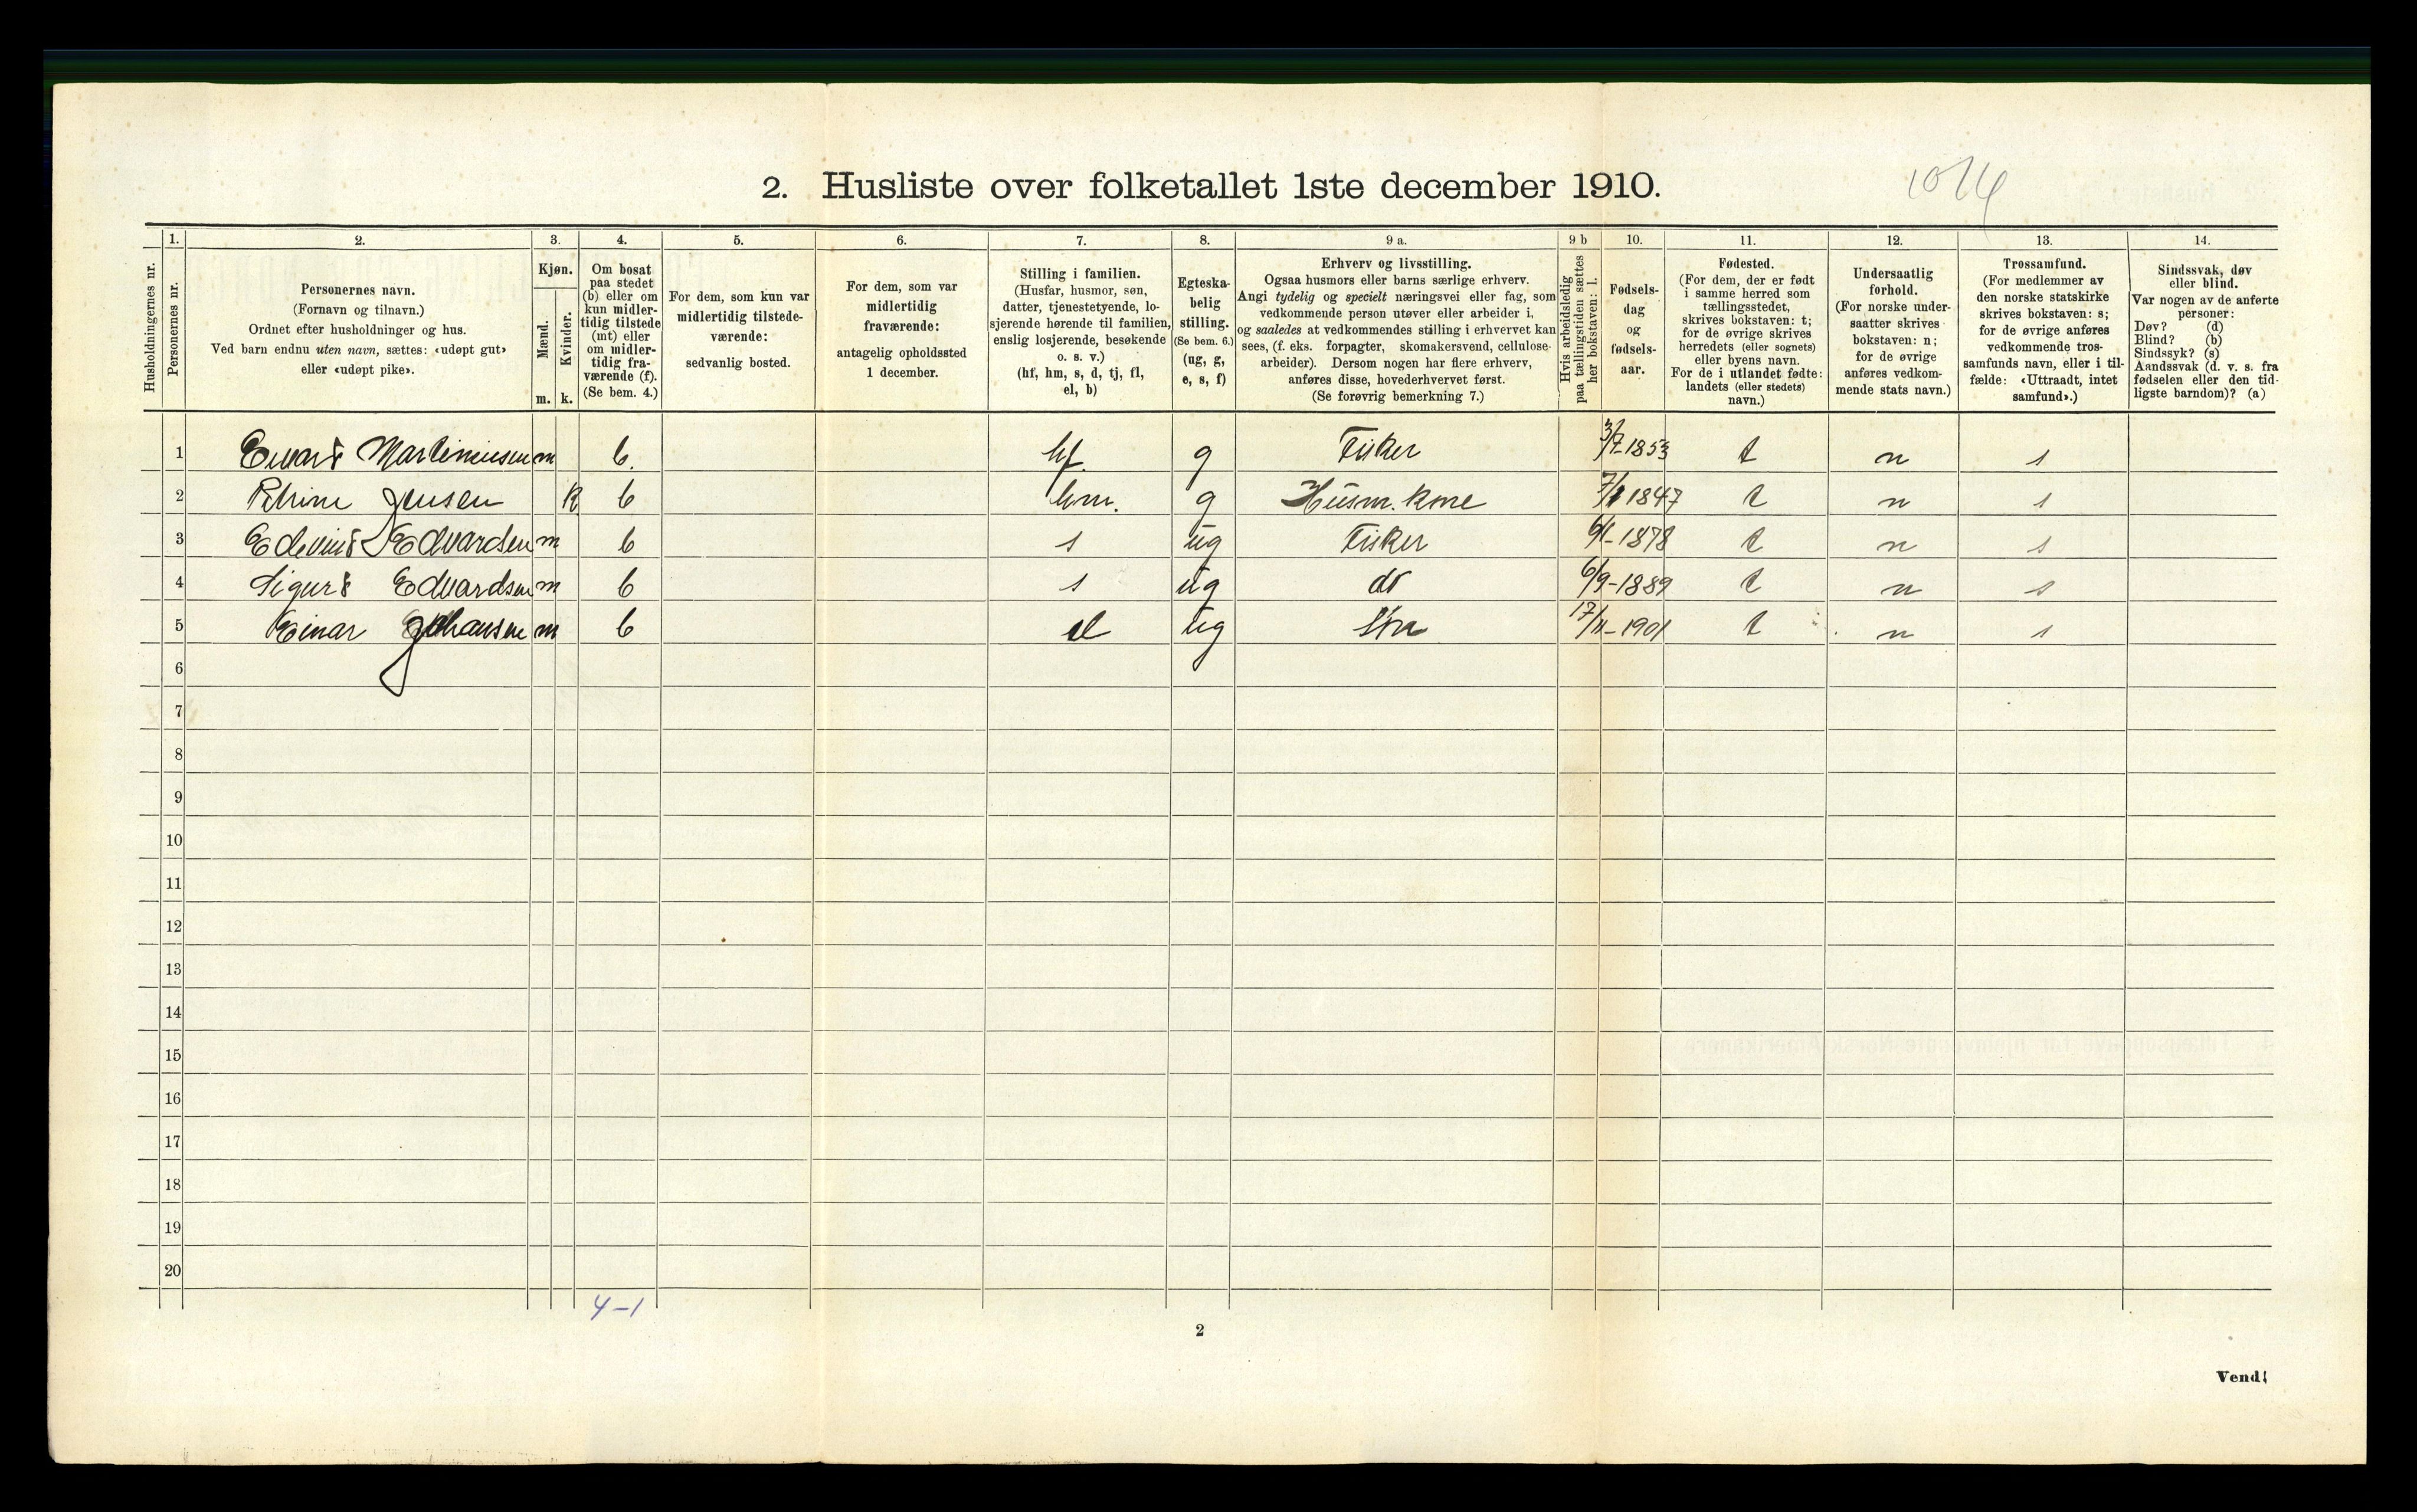 2. Husliste over folketallet 1ste december 1910.
Husholdningernes nr.
1.
Personernes nr.
2.
Personernes navn.
(Fornavn og tilnavn.)
Ordnet efter husholdninger og hus.
Ved barn endnu uten navn, sættes: «udøpt gut»
eller «udøpt pike».
3.
Kjøn.
Mænd.
Kvinder.
m. k.
4.
Om bosat
paa stedet
(b) eller om
kun midler-
tidig tilstede
(mt) eller
om midler-
tidig fra-
værende (f).
(Se bem. 4.)
5.
For dem, som kun var
midlertidig tilstede-
værende:
sedvanlig bosted.
6.
For dem, som var
midlertidig
fraværende:
antagelig opholdssted
1 december.
7.
Stilling i familien.
(Husfar, husmor, søn,
datter, tjenestetyende, lo-
sjerende hørende til familien,
enslig losjerende, besøkende
o. s. v.)
(hf, hm, s, d, tj, fl,
el, b)
8.
Egteska-
belig
stilling.
(Se bem. 6.)
(ug, g,
e, s, f)
9 a.
Erhverv og livsstilling.
Ogsaa husmors eller barns særlige erhverv.
Angi tydelig og specielt næringsvei eller fag, som
vedkommende person utøver eller arbeider i,
og saaledes at vedkommendes stilling i erhvervet kan
sees, (f. eks. forpagter, skomakersvend, cellulose-
arbeider). Dersom nogen har flere erhverv,
anføres disse, hovederhvervet først.
(Se forøvrig bemerkning 7.)
9 b
Hvis arbeidsledig
paa tællingstiden sættes
her bokstaven: l.
10.
Fødsels-
dag
og
fødsels-
aar.
11.
Fødested.
(For dem, der er født
i samme herred som
tællingsstedet,
skrives bokstaven: t;
for de øvrige skrives
herredets (eller sognets)
eller byens navn.
For de i utlandet fødte:
landets (eller stedets)
navn.)
12.
Undersaatlig
forhold.
(For norske under-
saatter skrives
bokstaven: n;
for de øvrige
anføres vedkom-
mende stats navn.)
13.
Trossamfund.
(For medlemmer av
den norske statskirke
skrives bokstaven: s;
for de øvrige anføres
vedkommende tros-
samfunds navn, eller i til-
fælde: «Uttraadt, intet
samfund».)
14.
Sindssvak, døv
eller blind.
Var nogen av de anførte
personer:
Døv? (d)
Blind? (b)
Sindssyk? (s)
Aandssvak (d. v. s. fra
fødselen eller den tid-
ligste barndom)? (a)
1 Martinius­en m b. hf. g Fisker 1853 t n s
2 Jensen k b hm. g Husm. kone 1847 t n s
3 Edvardsen m b s ug Fisker 6/1-1878 t n s
4 Sigurd Edvardsen m b s ug do 6/9-1889 t n s
5 Einar Johansen m b el ug 17/11-1901 t n s
6
7
8
9
10
11
12
13
14
15
16
17
18
19
20
4-1
2
Vend!